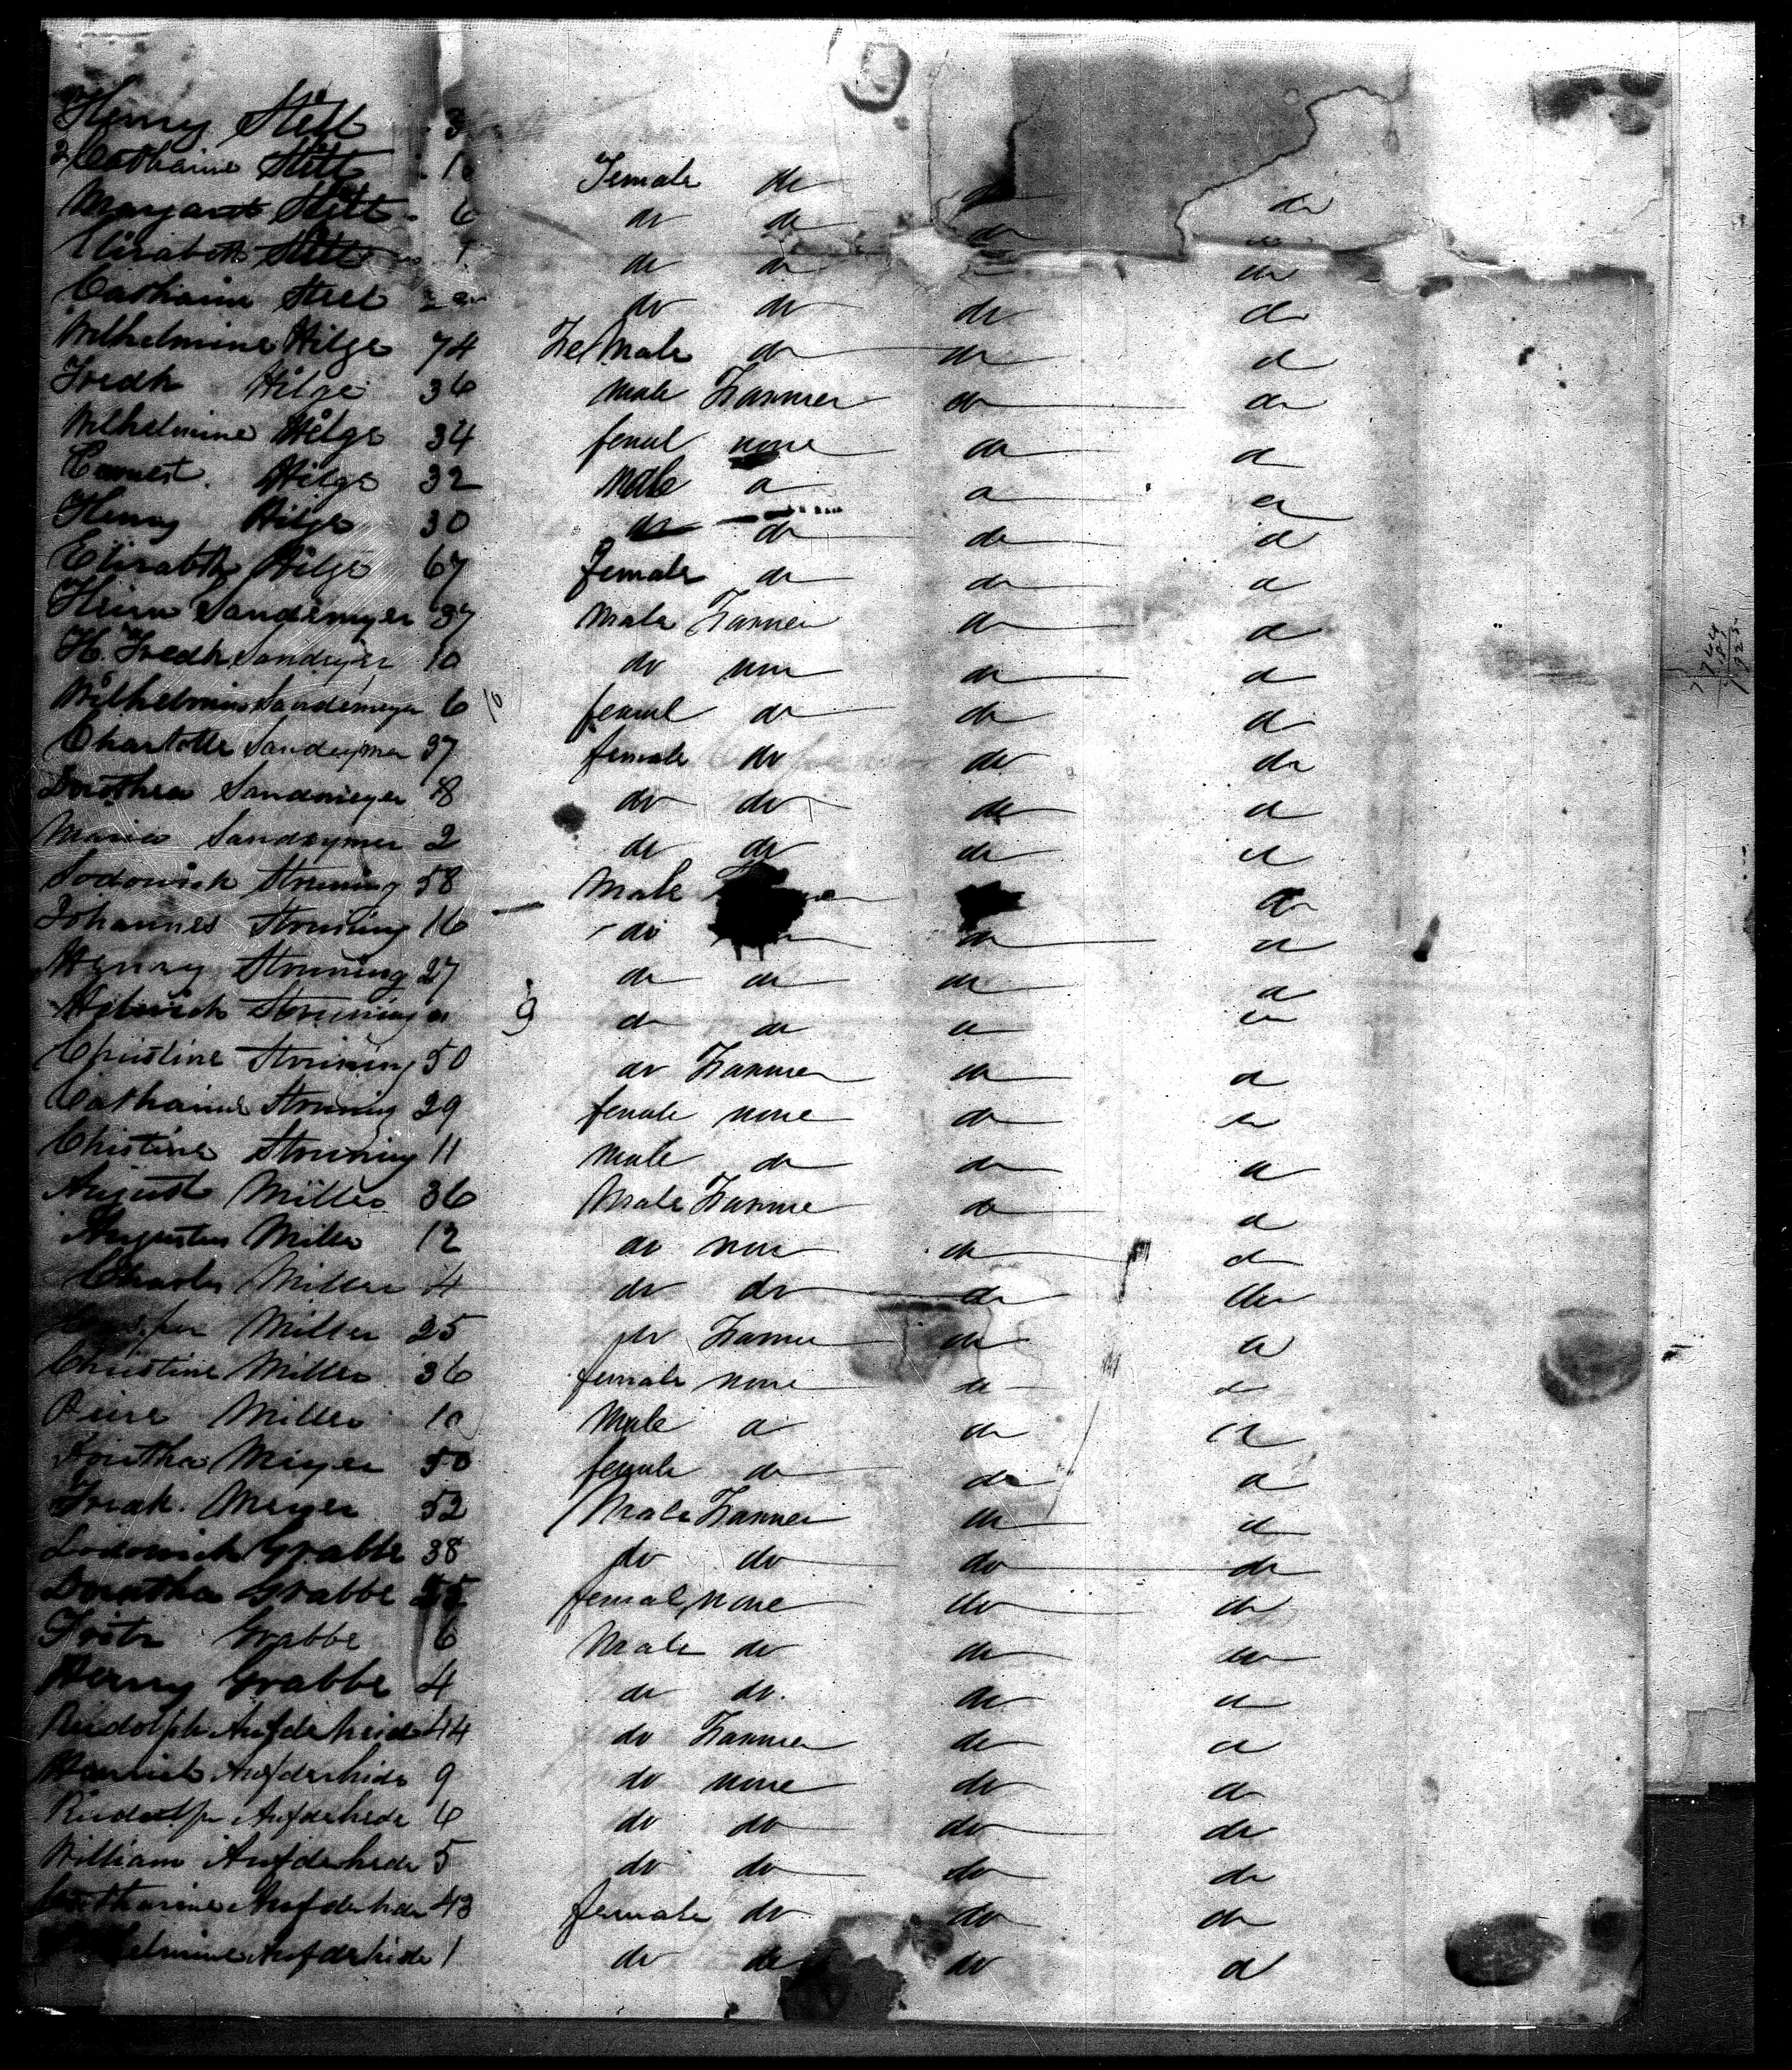 Henry Stell 3
Catharine Stell 1 Female do do do
Margaret Stell 6 do do do do
Elizabeth Stell do do do
Catharine Stell do do do do
Wilhelmine Hilge 74 Female do do do
Fredk Hilge 36 Male Farmer do do
Wilhelmine Hilge 34 femal none do do
Earnest Hilge 32 Male do do do
Henry Hilge 30 do do do do
Elizabth Hilge 67 Female do do do
Heinr Sandemyer 37 Male Farmer do do
H. Fredk Sandmyer 10 do non do do
Wilhelmine Sandemeyer 6 femal do do do
Charlotte Sandeymer 37 female do do do
Dorothea Sandemeyer 8 do do do do
Maria Sandeymer 2 do do do do
Lodowick Struning 58 Male do
Johannes Struning 16 do do do
Henry Struning 27 do do do do
Struning 9 do do do do
Christine Struning 50 do Farmer do do
Catharine Struning 29 female none do do
Christine Struning 11 Male do do do
August Miller 36 Male Farmer do do
Augustus Miller 12 do non do do
Charles Miller 4 do do do do
Miller 25 do Farmer do do
Christine Miller 36 female none do do
Miller 10 Male do do do
Dorotha Meyer 50 female do do do
Fredk. Meyer 52 Male Farmer do do
Lodowick Grabbe 38 do do do do
Dorotha Grabbe female none do do
Grabbe 6 Male do do do
Henry Grabbe 4 do do. do do
Rudolph Aufderheide 44 do Farmer do do
Henrich Aufderhide 9 do none do do
Rudolph Aufderhede 6 do do do do
William Aufderhede 5 do do do do
Catharine Aufderhide 43 female do do do
Aufderhide 1 do do do do